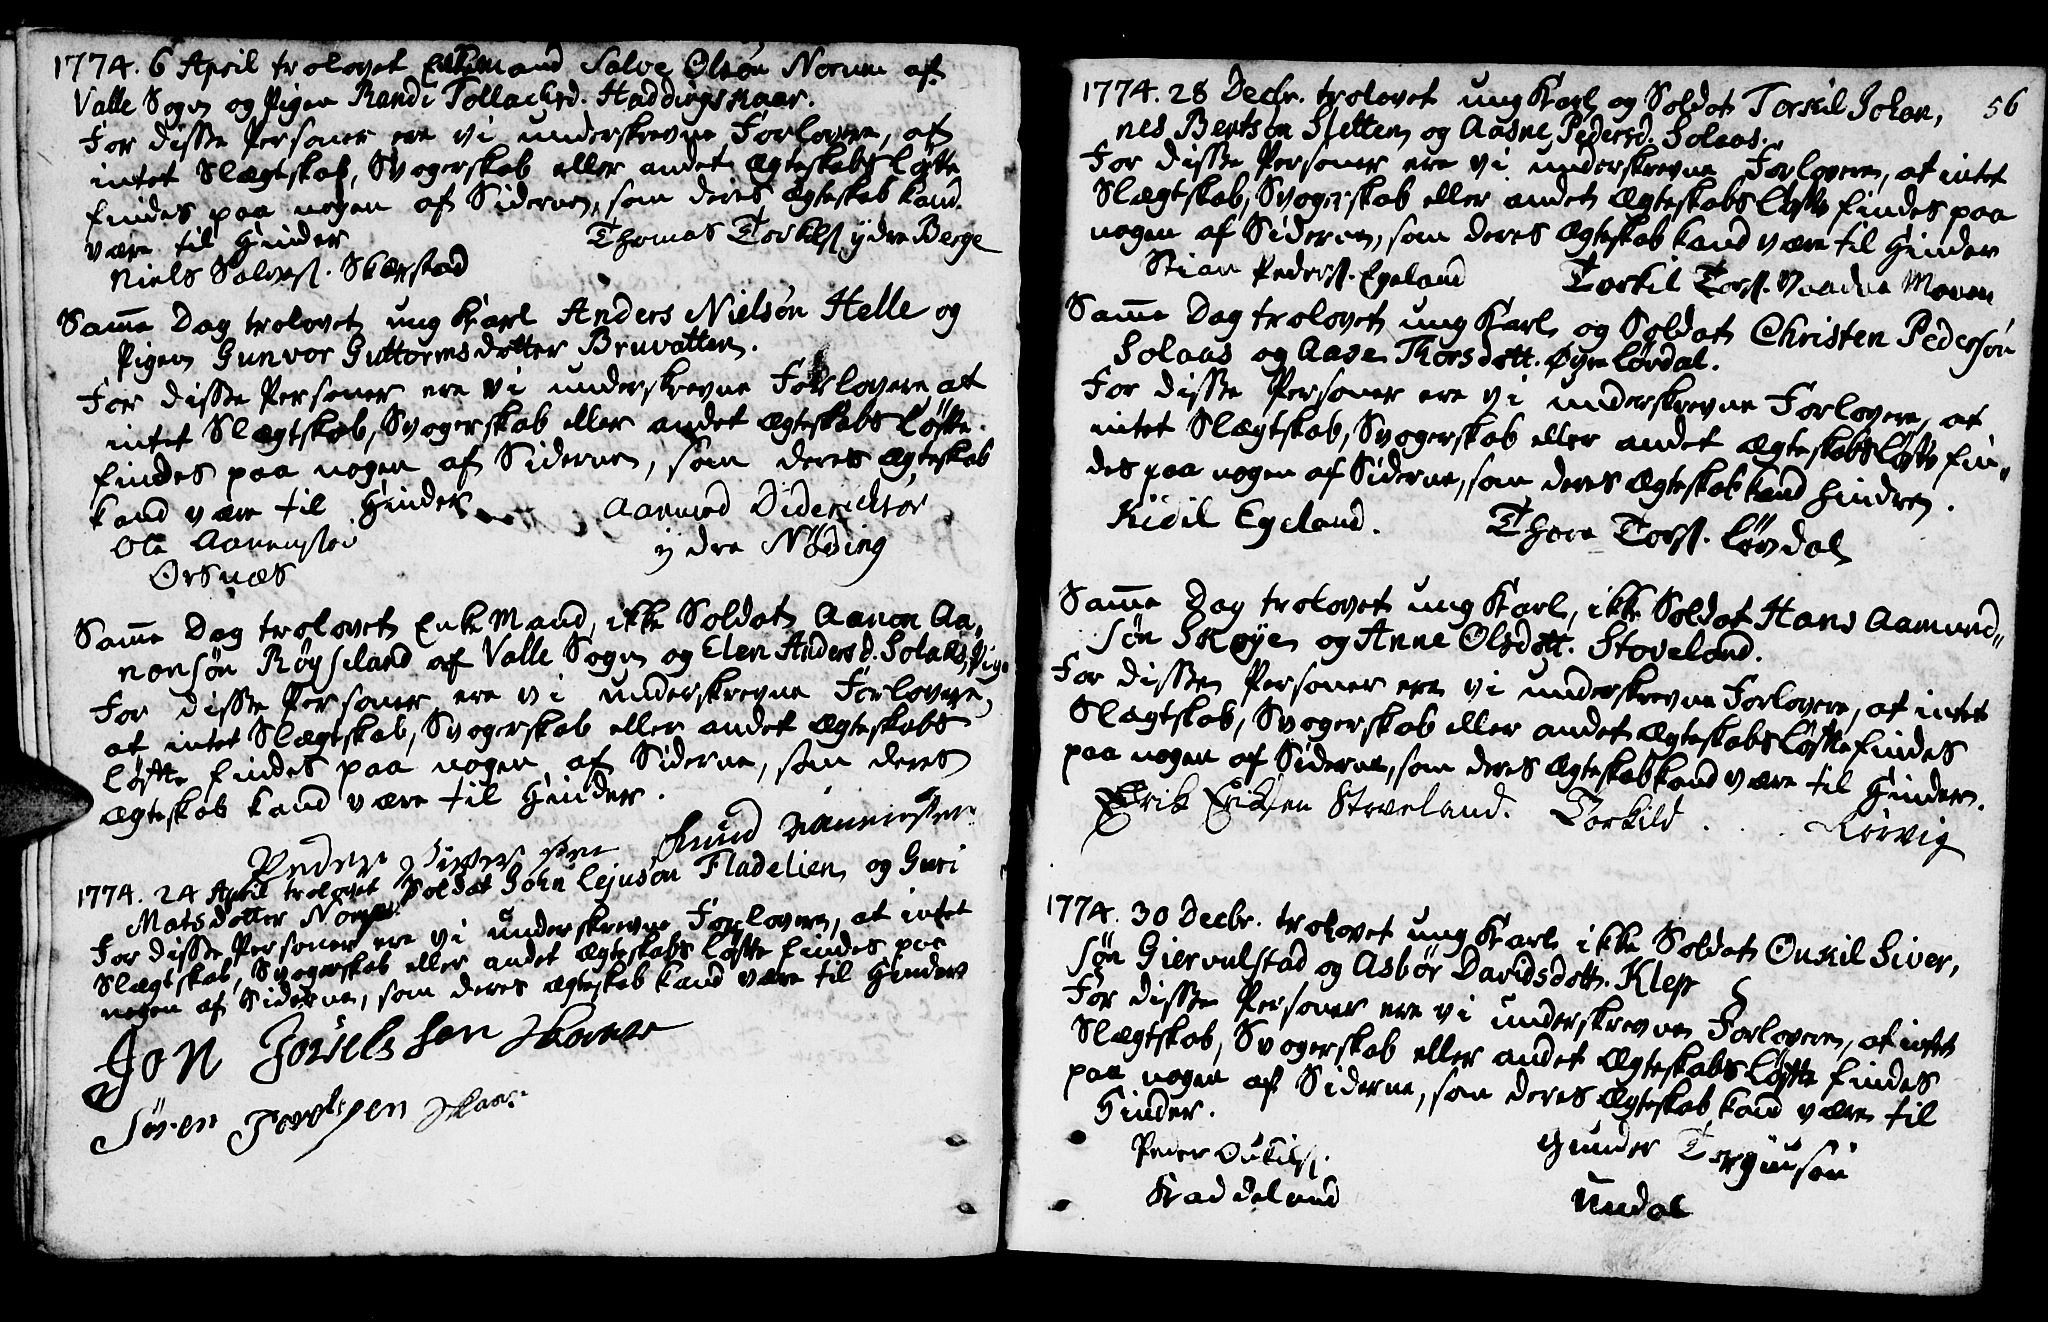 1774. 6 April trolovet Enkemand Salve Olsøn Norum af
Valle Sogn og Pigen Randi Tollachsd. Haddingskaar.
For disse Personer ere vi underskrevne Forlovere, at
intet Slægtskab, Svogerskab eller andet Ægteskabs Løfte
findes paa nogen af Siderne, som deres Ægteskab kand
være til Hinder
Thomas Torkilss ydre Berge
Niels Salvess. Skierstad
Samme Dag trolovet ung Karl Anders Nielsøn Helle og
Pigen Gunvor Guttormsdotter Bruvatten.
For disse Personer ere vi underskrevne Forlovere, at
intet Slægtskab, Svogerskab eller andet Ægteskabs Løfte
findes paa nogen af Siderne, som deres Ægteskab
kand være til Hinder
Aanund Diderichsøn
Ole Aanensen
ydre Nøding
Orsnæs
Samme Dag trolovet Enke Mand, ikke Soldat Aanon Aa,
nonsøn Røyseland af Valle Sogn og Elen Andersd. Solaas, Pige
For disse Personer ere vi underskrevne Forlovere,
at intet Slægtskab, Svogerskab eller andet Ægteskabs
Løfte findes paa nogen af Siderne, som deres
Ægteskab kand være til Hinder.
Peder Knud
1774. 24 April trolovet Soldat John Ejusøn Fladelien og Guri
Matsdotter
For disse Personer ere vi underskrevne Forlovere, at intet
Slægtskab, Svogerskab eller andet Ægteskabs Løfte findes paa
nogen af Siderne, som deres Ægteskab kand være til Hinder
Jon
Søren
56
1774. 28 Decbr. trolovet ung Karl og Soldat Torkil Johan,
nes Bentsøn Sletten og Aasne Pedersd. Solaas.
For disse Personer ere vi underskrevne Forlovere, at intet
Slægtskab, Svogerskab eller andet Ægteskabs Løfte findes paa
nogen af Siderne, som deres Ægteskab kand være til Hinder
Stian Pederss. Egeland Torkil Torss.
Samme Dag trolovet ung Karl og Soldat Christen Pedersøn
Solaas og Aase Thorsdott. Øyre Lørdal.
For disse Personer ere vi underskrevne Forlovere, at
intet Slægtskab, Svogerskab eller andet Ægteskabs Løfte fin„
des paa nogen af Siderne, som deres Ægteskab kand hindre.
Kidil Egeland. Thore Torss. Lørdal
Samme Dag trolovet ung Karl, ikke Soldat Hans Aamund„
søn Skøye og Anne Olsdott. Stoveland.
For disse Personer ere vi underskrevne Forlovere, at intet
Slægtskab, Svogerskab eller andet Ægteskabs Løfte findes
paa nogen af Siderne, som deres Ægteskab kand være til Hinder.
Erik Eriksen Stoveland. Torkild Rørvig
1774. 30 Decbr. trolovet ung Karl ikke Soldat Onkil Siver,
søn Giervulstad og Asbør Davidsdott. Klep
For disse Personer ere vi underskrevne Forlovere, at intet
Slægtskab, Svogerskab eller andet Ægteskabs Løfte findes
paa nogen af Siderne, som deres Ægteskab kand være til
Hinder.
Peder Onkilss. Gunder Torgiusøn
Kaddeland Undal